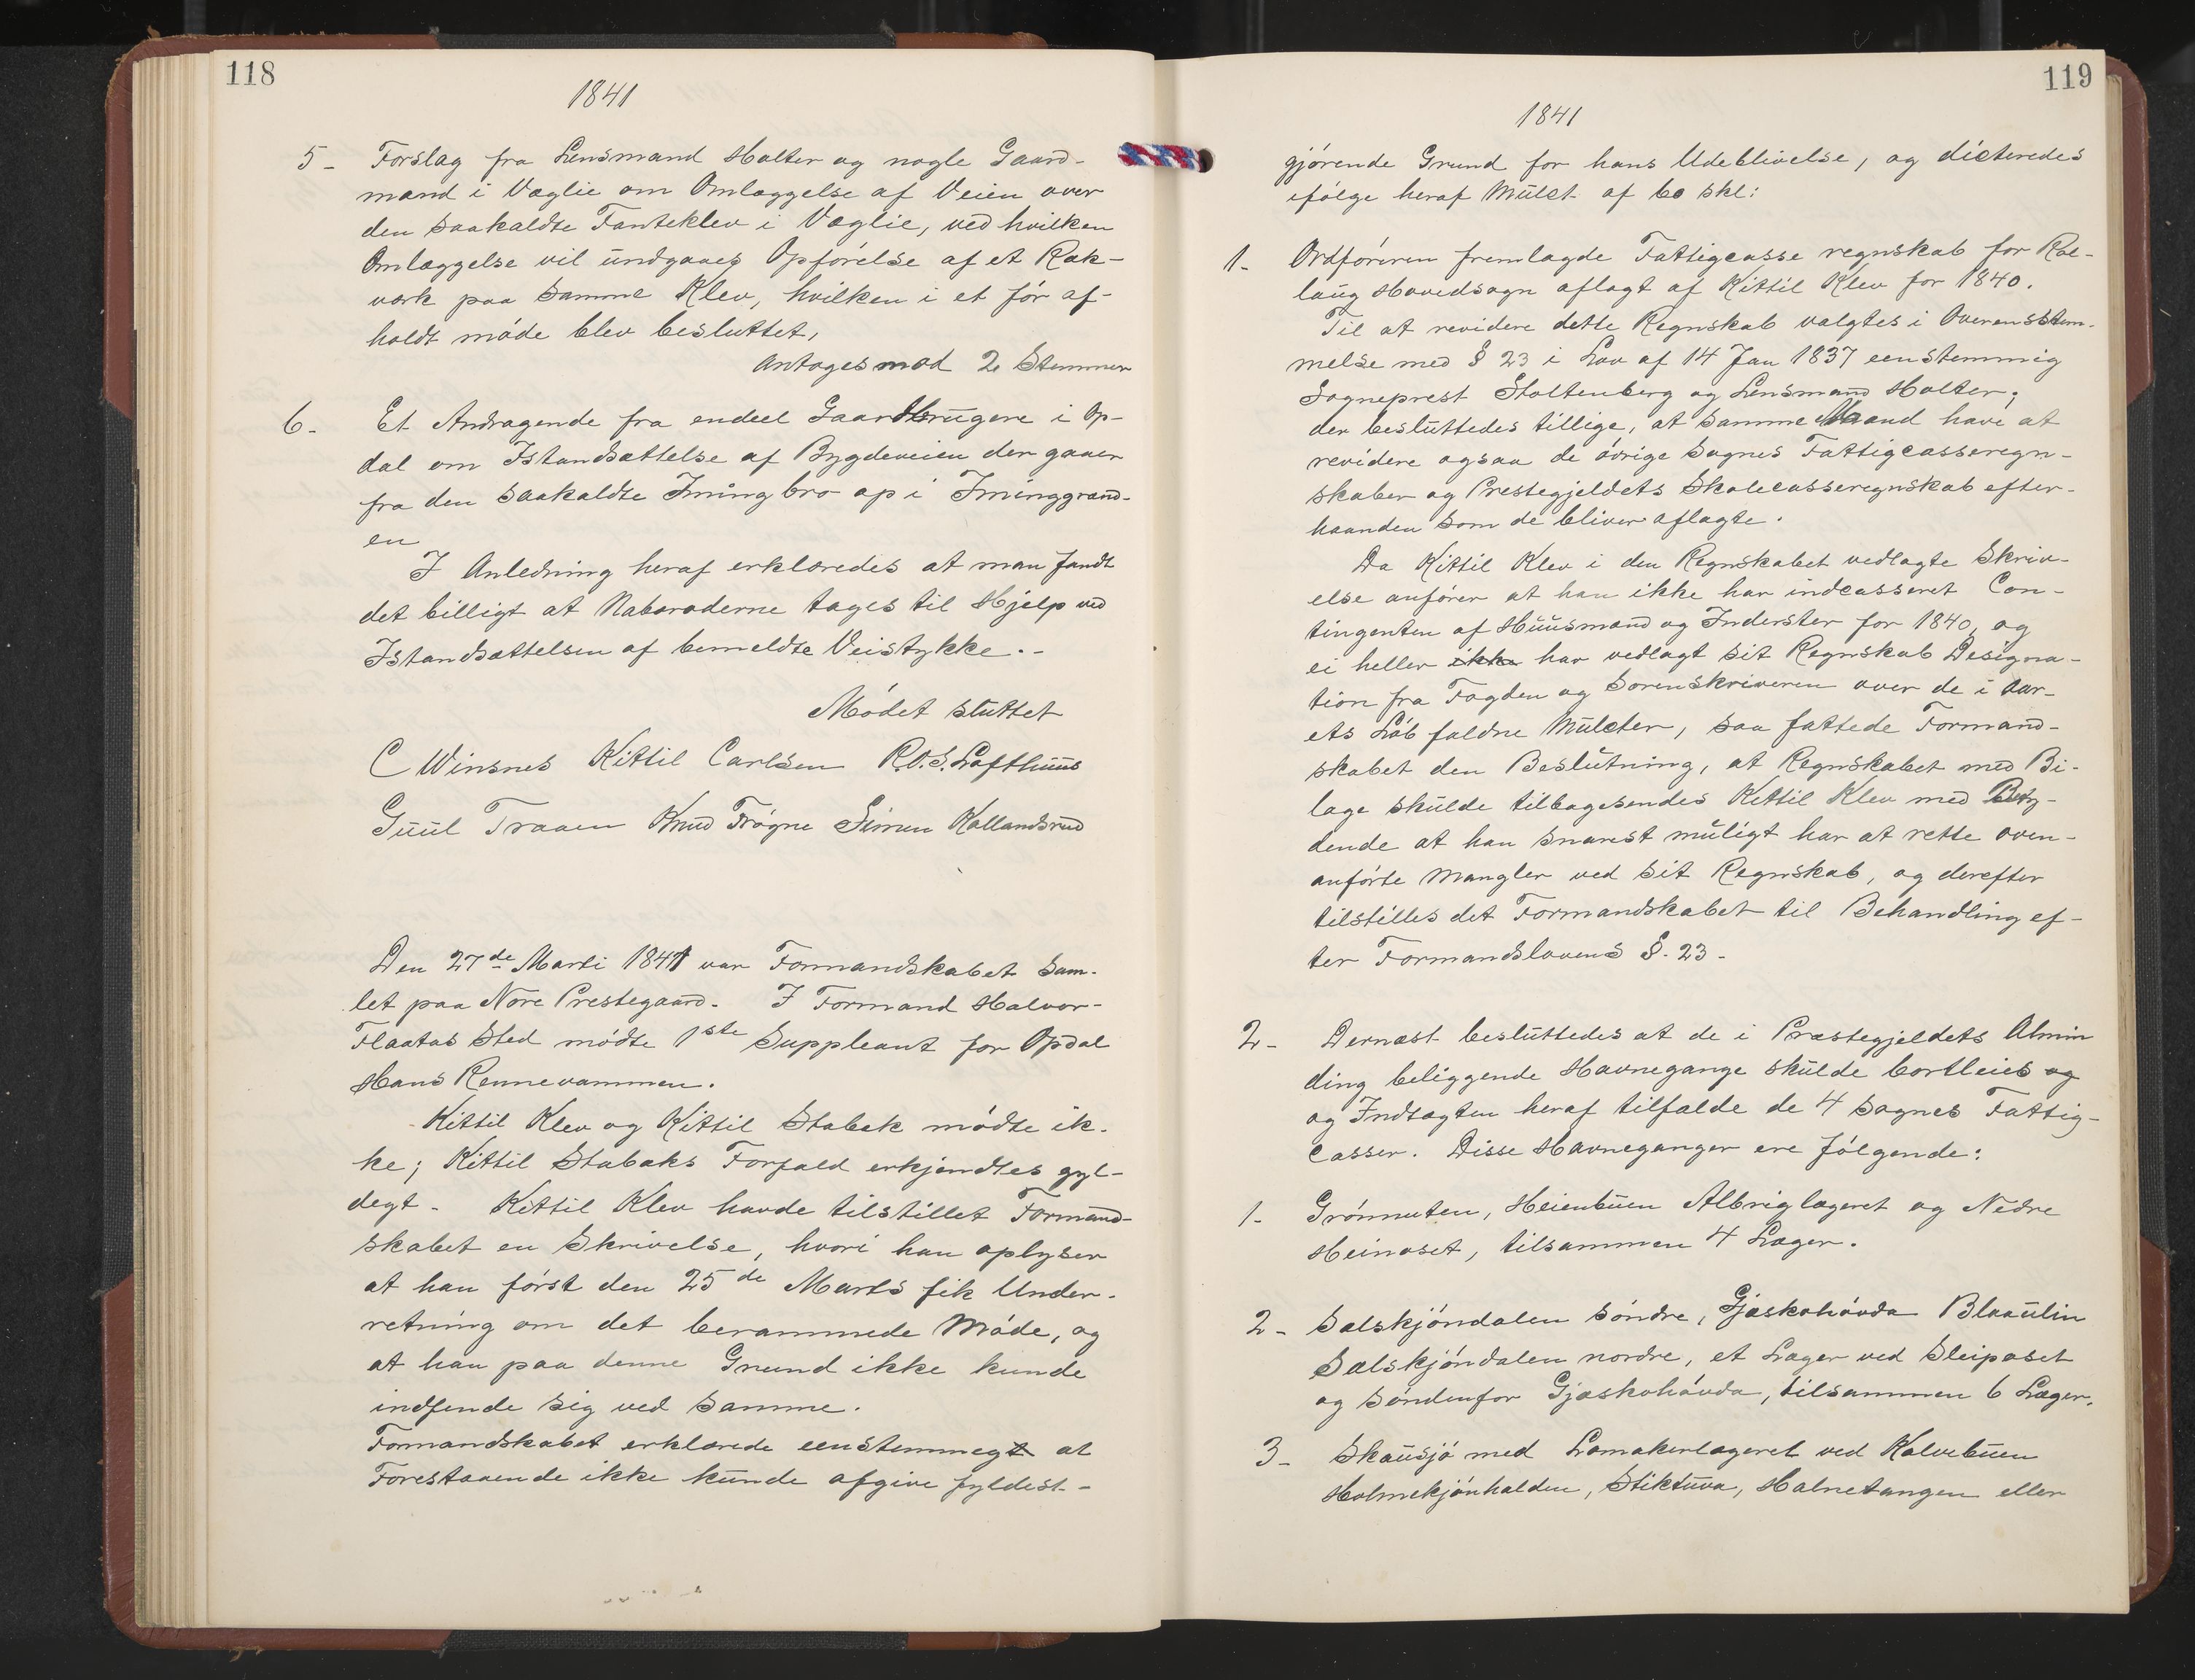 118
1841
5- Forslag fra Lensmand Holter og nogle Gaard-
mænd i Væglie om Omlæggelse af Veien over
den saakaldte Fanteklev i Væglie, ved hvilken
Omlæggelse vil undgaaes Opførelse af et Ræk-
værk paa samme Klev, hvilken i et før af-
holdt møde blev besluttet,
Antoges mod 2 Stemmer
6- Et Andragende fra endeel Gaardbrugere i Op-
dal om Istandsættelse af Bygdeveien der gaaer
fra den saakaldte Imingbro op i Iminggrænd-
en
I Anledning heraf erklæredes at man fandt
det billigt at Naboroderne tages til Hjelp ved
Istandsættelsen af bemeldte Veistykke.-
Mødet sluttet
C Winsnes Kittil Carlsen R.O.S. Lofthuus
Guul Traaen Knud Frøgne Simen Kallandsrud
Den 27de Marti 1841 var Formandskabet sam-
let paa Nore Prestegaard. I Formand Halvor-
Flaatas Sted mødte 1ste Suppleant for Opdal
Hans Rennevammen.
Kittil Klev og Kittil Stabek mødte ik-
ke; Kittil Stabæks Forfald erkjendtes gyl-
degt. Kittil Klev havde tilstillet Formand-
skabet en Skrivelse, hvori han oplyser
at han først den 25de Marts fik Under-
retning om det berammede Møde, og
at han paa denne Grund ikke kunde
indfende sig ved samme.
Formandskabet erklærede eenstemmegt at
Forestaaende ikke kunde afgive fyldest-
119
1841
gjørende Grund for hans Udeblivelse, og dicteredes
ifølge heraf Mulct af 60 skl:
1- Ordføreren fremlagde Fattigcasse regnskab for Rol-
laug Hovedsogn aflagt af Kittil Klev for 1840.
Til at revidere dette Regnskab valgtes i Overensstem-
melse med § 23 i Lov af 14 Jan 1837 eenstemmig
Sogneprest Stoltenberg og Lensmand Holter;
der besluttedes tillige, at samme Mænd have at
revidere ogsaa de øvrige Sognes Fattigcasseregn-
skaber og Prestegjeldets Skolecasseregnskab efter-
haanden som de bliver aflagte.
Da Kittil Klev i den Regnskabet vedlagte Skriv-
else anfører at han ikke har indcasseret Con-
tingenten af Huusmænd og Inderster for 1840, og
ei heller ikke har vedlagt sit Regnskab Designa-
tion fra Fogden og Sorenskriveren over de i Aar-
ets Løb faldne Mulcter, saa fattede Formand-
skabet den Beslutning, at Regnskabet med Bi-
lage skulde tilbagesendes Kittil Klev med Bety-
dende at han snarest muligt har at rette oven-
anførte Mangler ved sit Regnskab, og derefter
tilstilles det Formandskabet til Behandling ef-
ter Formandslovens §. 23-
2- Dernæst besluttedes at de i Præstegjeldets Almin
ding beliggende Havnegange skulde bortleies og
og Indtægten heraf tilfalde de 4 Sognes Fattig-
casser. Disse Havneganger ere følgende:
1- Grønnuten, Heienbuen Albriglægeret og Nedre
Heinoset, tilsammen 4 Læger.
2- Solskjøndalen søndre, Gjæskehøvda Blaaulin
Sælskjøndalen nordre, et Læger ved Sleiposet
og søndenfor Gjæskehøvda, tilsammen 6 Læger.
3- Skausjø med Lamakerlægeret ved Kalvebuen
Holmekjønhalden, Stiktuva, Halnetangen eller